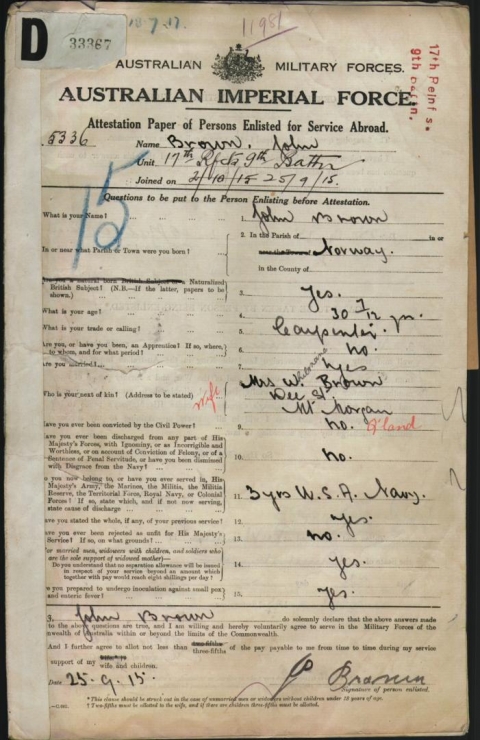 D
33367
11981
17th Reinf's.
9th Battn.
AUSTRALIAN MILITARY FORCES.
AUSTRALIAN IMPERIAL FORCE.
Attestation Paper of Persons Enlisted for Service Abroad.
5336
Name Brown. John
Unit 17th Rfcts 9th Battn
Joined on 2/10/15 25/9/15.
15
Questions to be put to the Person Enlisting before Attestation.
What is your Name? 1. John Brown
In or near what Parish or Town were you born? 2. In the Parish of in or
Norway.
in the County of
Are you a natural born British Subject or a Naturalised
British Subject? (N.B.—If the latter, papers to be
shown.) 3. Yes.
What is your age? 4. 30 7/12 yrs.
What is your trade or calling? 5. Carpenter.
Are you, or have you been, an Apprentice? If so, where,
to whom, and for what period? 6. no.
Are you married? 7. Yes
Who is your next of kin? (Address to be stated) wife 8. Mrs W. Brown
Dee St.
Mt Morgan
Q'land
Have you ever been convicted by the Civil Power? 9. no.
Have you ever been discharged from any part of His
Majesty's Forces, with Ignominy, or as Incorrigible and
Worthless, or on account of Conviction of Felony, or of a
Sentence of Penal Servitude, or have you been dismissed
with Disgrace from the Navy? 10. no.
Do you now belong to, or have you ever served in, His
Majesty's Army, the Marines, the Militia, the Militia
Reserve, the Territorial Force, Royal Navy, or Colonial
Forces? If so, state which, and if not now serving,
state cause of discharge 11. 3 yrs U.S.A. Navy.
Have you stated the whole, if any, of your previous service? 12. yes.
Have you ever been rejected as unfit for His Majesty's
Service? If so, on what grounds? 13. no.
For married men, widowers with children, and soldiers who
are the sole support of widowed mother—
Do you understand that no separation allowance will be issued
in respect of your service beyond an amount which
together with pay would reach eight shillings per day? 14. yes.
Are you prepared to undergo inoculation against small pox
and enteric fever? 15. yes.
John Brown do solemnly declare that the above answers made
to the above questions are true, and I am willing and hereby voluntarily agree to serve in the Military Forces of the
Commonwealth of Australia within or beyond the limits of the Commonwealth.
And I further agree to allot not less than two-fifths
three-fifths of the pay payable to me from time to time during my service
support of my wife
wife and children.
Date 25.9.15. J Brown
Signature of person enlisted.
* This clause should be struck out in the case of unmarried men or widowers without children under 18 years of age.
† Two-fifths must be allotted to the wife, and if there are children three-fifths must be allotted.